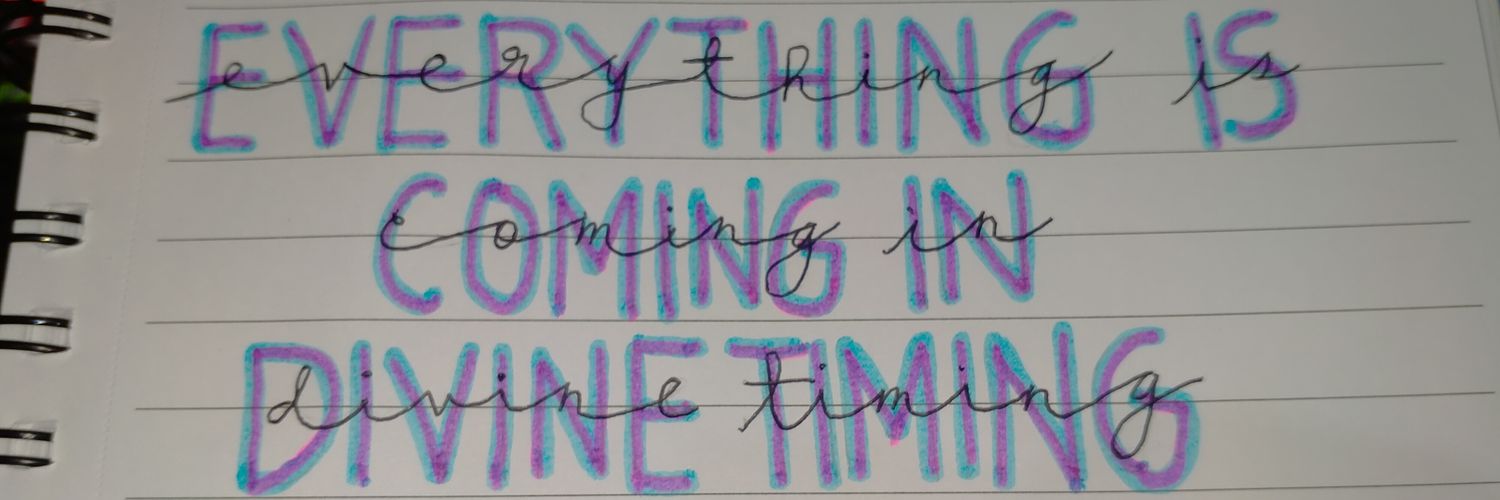 EVERYTHING IS
everything is
COMING IN
coming in
DIVINE TIMING
divine timing